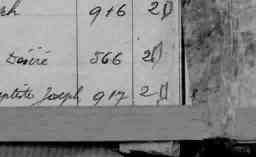 ph 916 2
Désiré 566 2
aptiste Joseph 917 2